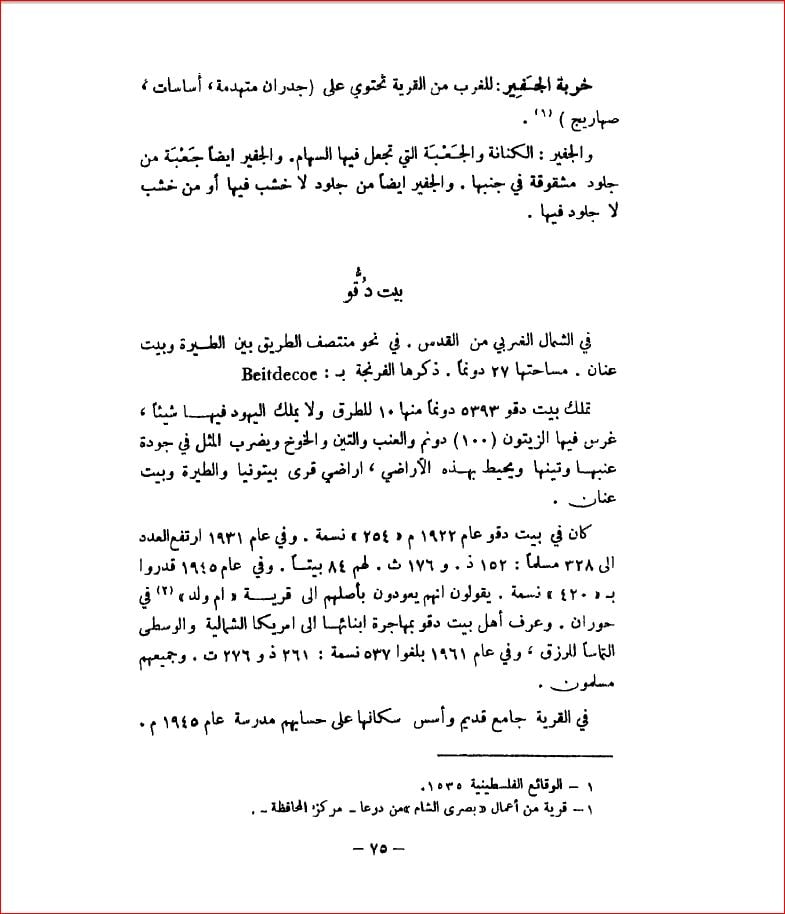 خربة الجَفِير : للغرب من القرية تحتوي على (جدران متهدمة ، أساسات ،
صهاريج ) (١) .
والجفير : الكنانة والجَعْبَة التي تجعل فيها السهام. والجفير ايضاً جَعْبَة من
جلود مشقوقة في جنبها . والجفير ايضاً من جلود لا خشب فيها أو من خشب
لا جلود فيها .
بيت دُقُّو
في الشمال الغربي من القدس . في نحو منتصف الطريق بين الطيرة وبيت
عنان . مساحتها ٢٧ دونماً . ذكرها الفرنجة بـ : Beitdecoe
تملك بيت دقو ٥٣٩٣ دونماً منها ١٠ للطرق ولا يملك اليهود فيها شيئاً ،
غرس فيها الزيتون (١٠٠) دونم والعنب والتين والخوخ ويضرب المثل في جودة
عنبها وتينها ويحيط بهذه الآراضي ، اراضي قرى بيتونيا والطيرة وبيت
عنان .
كان في بيت دقو عام ١٩٢٢ م « ٢٥٤ » نسمة . وفي عام ١٩٣١ ارتفع العدد
الى ٣٢٨ مسلماً : ١٥٢ ذ . و ١٧٦ ث . لهم ٨٤ بيتاً . وفي عام ١٩٤٥ قدروا
بـ « ٤٢٠ » نسمة . يقولون انهم يعودون بأصلهم الى قرية « ام ولد » (٢) في
حوران . وعرف أهل بيت دقو بمهاجرة ابنائها الى امريكا الشمالية والوسطى
التماساً للرزق ، وفي عام ١٩٦١ بلغوا ٥٣٧ نسمة : ٢٦١ ذ و ٢٧٦ ت . وجميعهم
مسلمون .
في القرية جامع قديم وأسس سكانها على حسابهم مدرسة عام ١٩٤٥ م .
١ – الوقائع الفلسطينية ١٥٣٥.
١– قرية من أعمال «بصرى الشام »من درعا – مركز المحافظة – .
– ٧٥ –